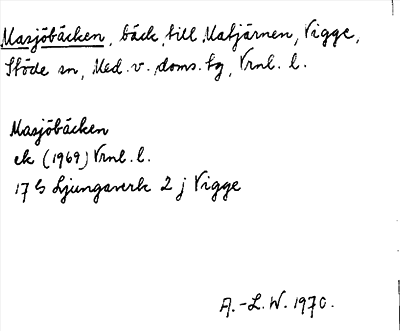 Masjöbäcken, bäck, till Matjärnen, Vigge,
Stöde sn, Med. v. doms. fg, Vrnl. l.
Masjöbäcken
ek (1969) Vrnl. l.
17 G Ljungaverk 2 j Vigge
A.-L. W. 1970.